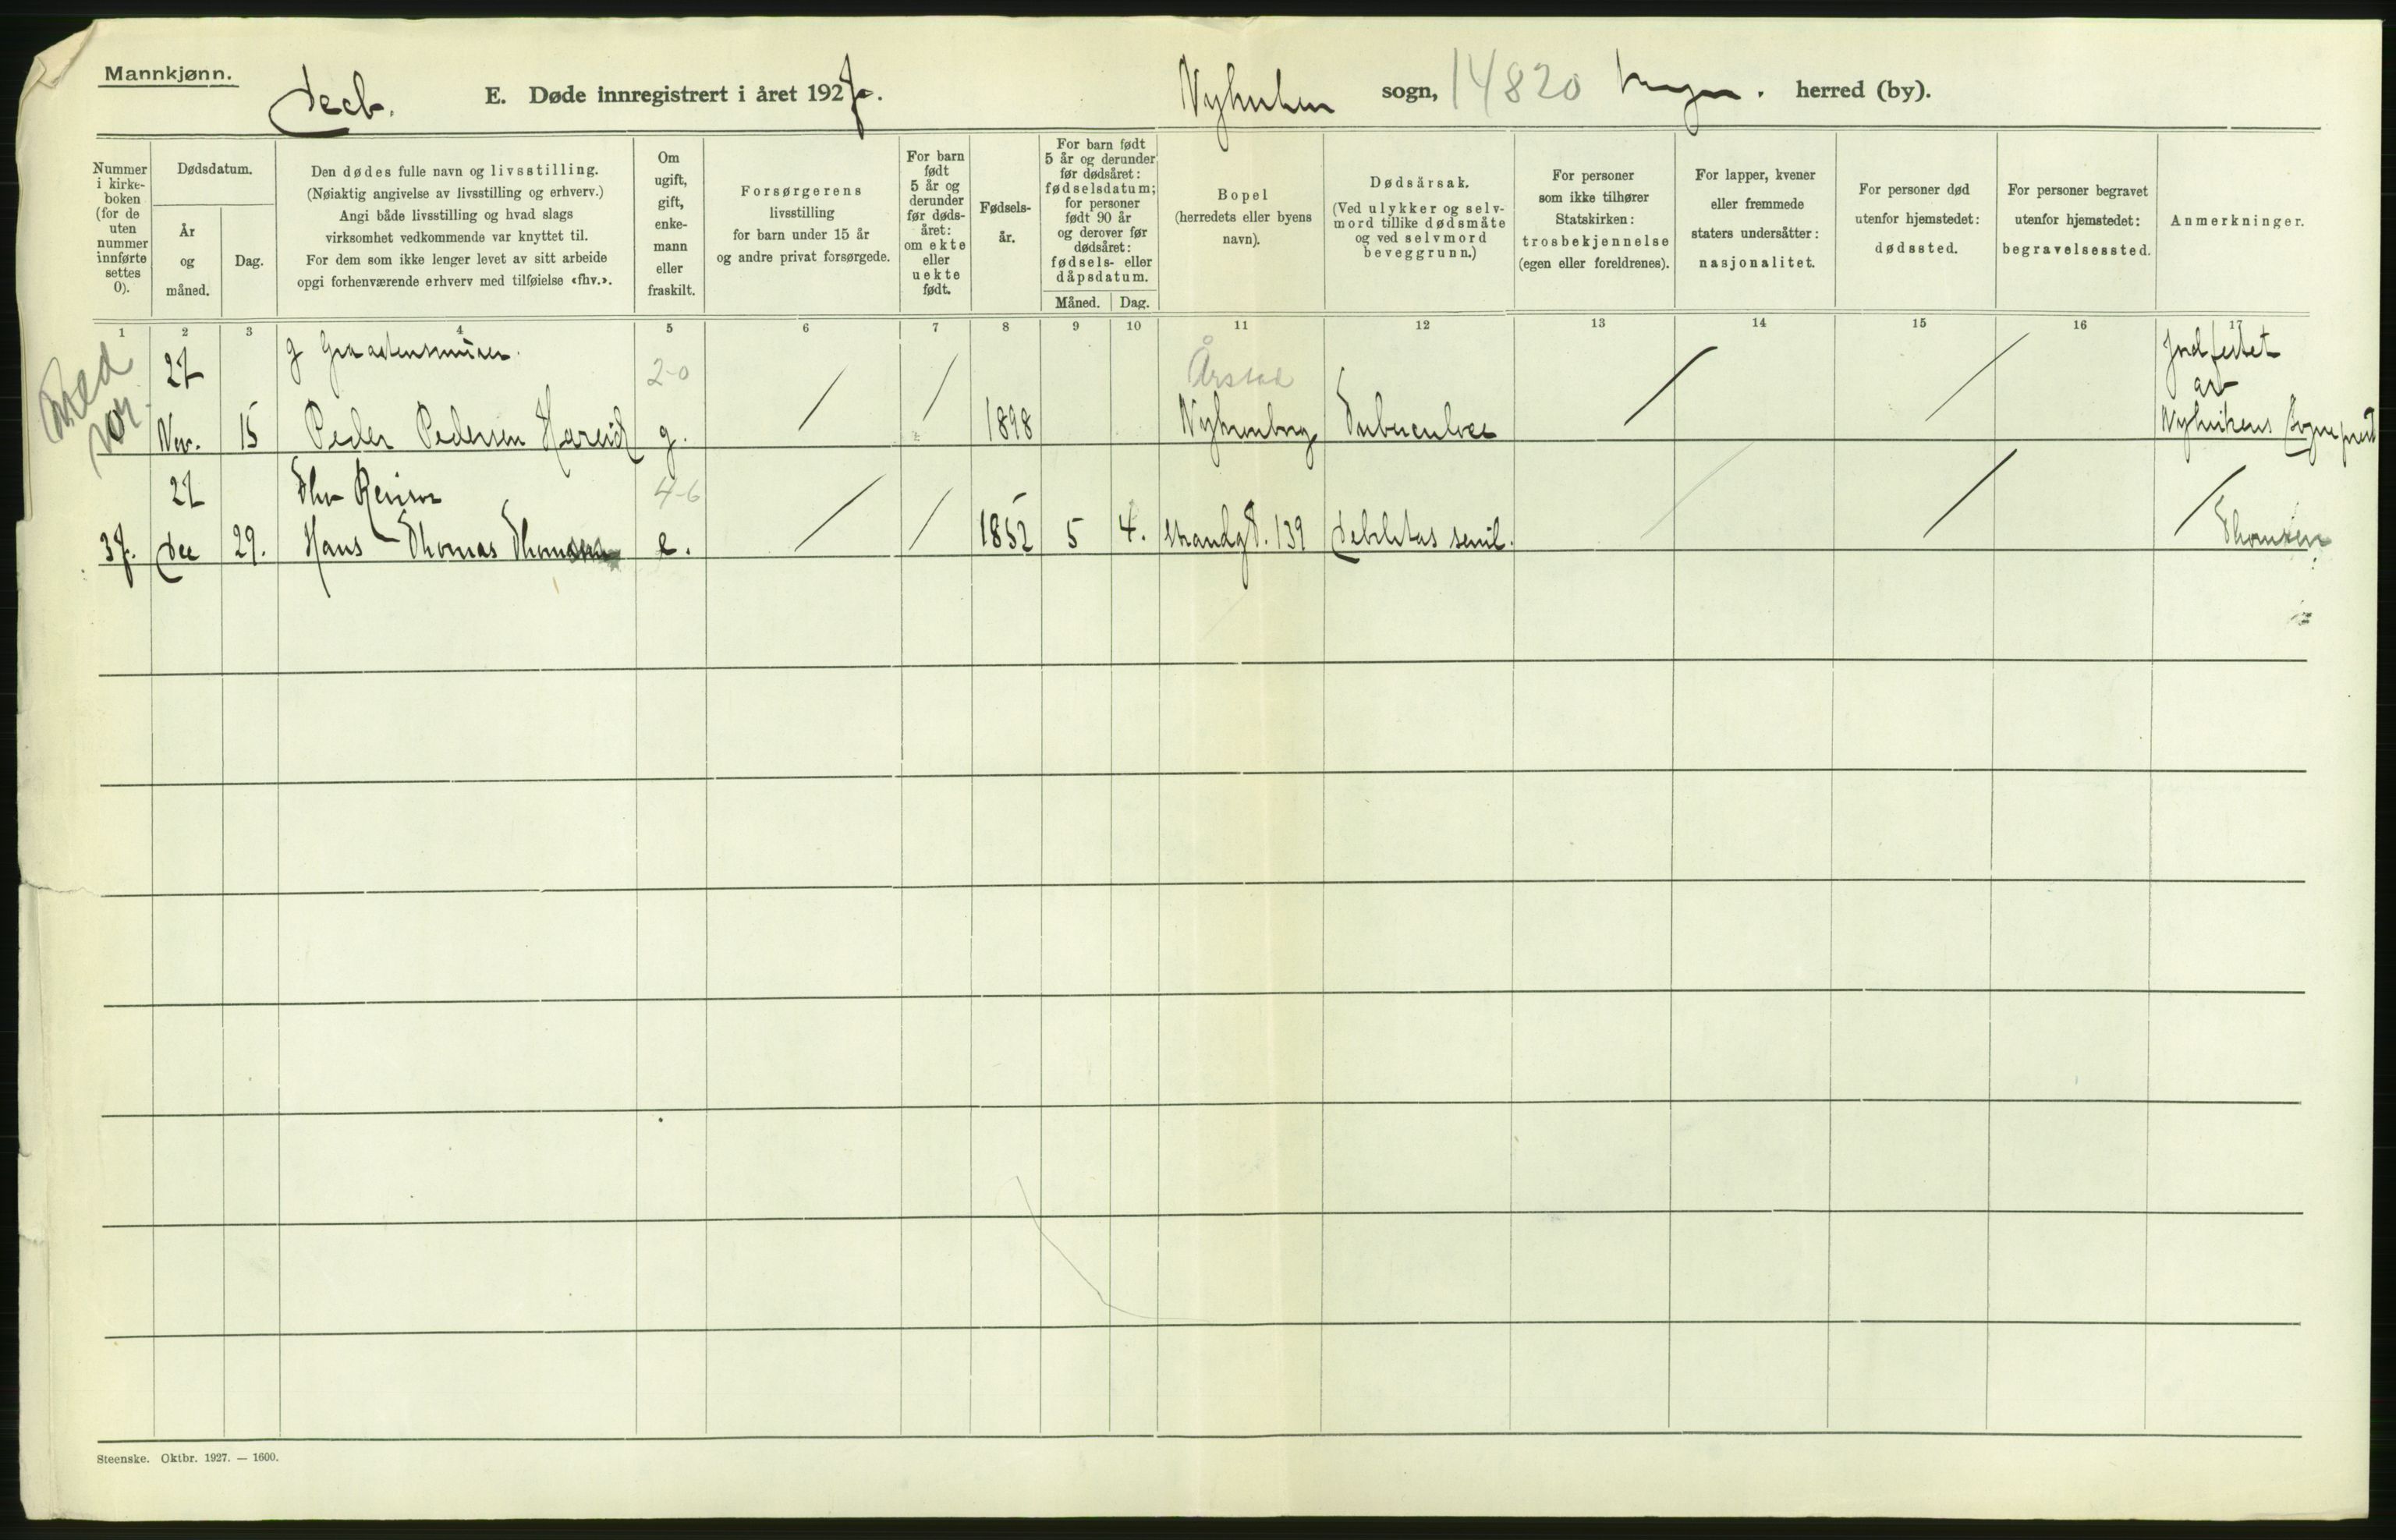 Mannkjønn.
Decb. E. Døde innregistrert i året 1927. Nykirken sogn, 14820 herred (by).
Nummer i kirkeboken (for de uten nummer innførte settes 0).
Dødsdatum.
År og måned.
Dag.
Den dødes fulle navn og livsstilling.
(Nøiaktig angivelse av livsstilling og erhverv.)
Angi både livsstilling og hvad slags
virksomhet vedkommende var knyttet til.
For dem som ikke lenger levet av sitt arbeide
opgi forhenværende erhverv med tilføielse «fhv.».
Om ugift, gift, enkemann eller fraskilt.
Forsørgerens
livsstilling
for barn under 15 år
og andre privat forsørgede.
For barn født 5 år og derunder før dødsåret: om ekte eller uekte født.
Fødselsår.
For barn født
5 år og derunder
før dødsåret:
fødselsdatum;
for personer
født 90 år
og derover før
dødsåret:
fødsels- eller
dåpsdatum.
Måned. Dag.
Bopel
(herredets eller byens
navn).
Dødsårsak.
(Ved ulykker og selvmord tillike dødsmåte
og ved selvmord
beveggrunn.)
For personer
som ikke tilhører
Statskirken:
trosbekjennelse
(egen eller foreldrenes).
For lapper, kvener
eller fremmede
staters undersåtter:
nasjonalitet.
For personer død
utenfor hjemstedet:
dødssted.
For personer begravet
utenfor hjemstedet:
begravelsessted.
Anmerkninger.
1 2 3 4 5 6 7 8 9 10 11 12 13 14 15 16 17
27 2-0 Årstad
Nov. 15 Peder Pedersen Hareid g. 1898 Tuberculose
Indført
av
Nykirkens Sogneprest
27 Fhv Revisor 4-6
37. Dec 29. Hans Thomas Thomsen e. 1852 5 4. Strandgt. 139 Debilitas senil. Thomsen
Steenske. Oktbr. 1927. — 1600.